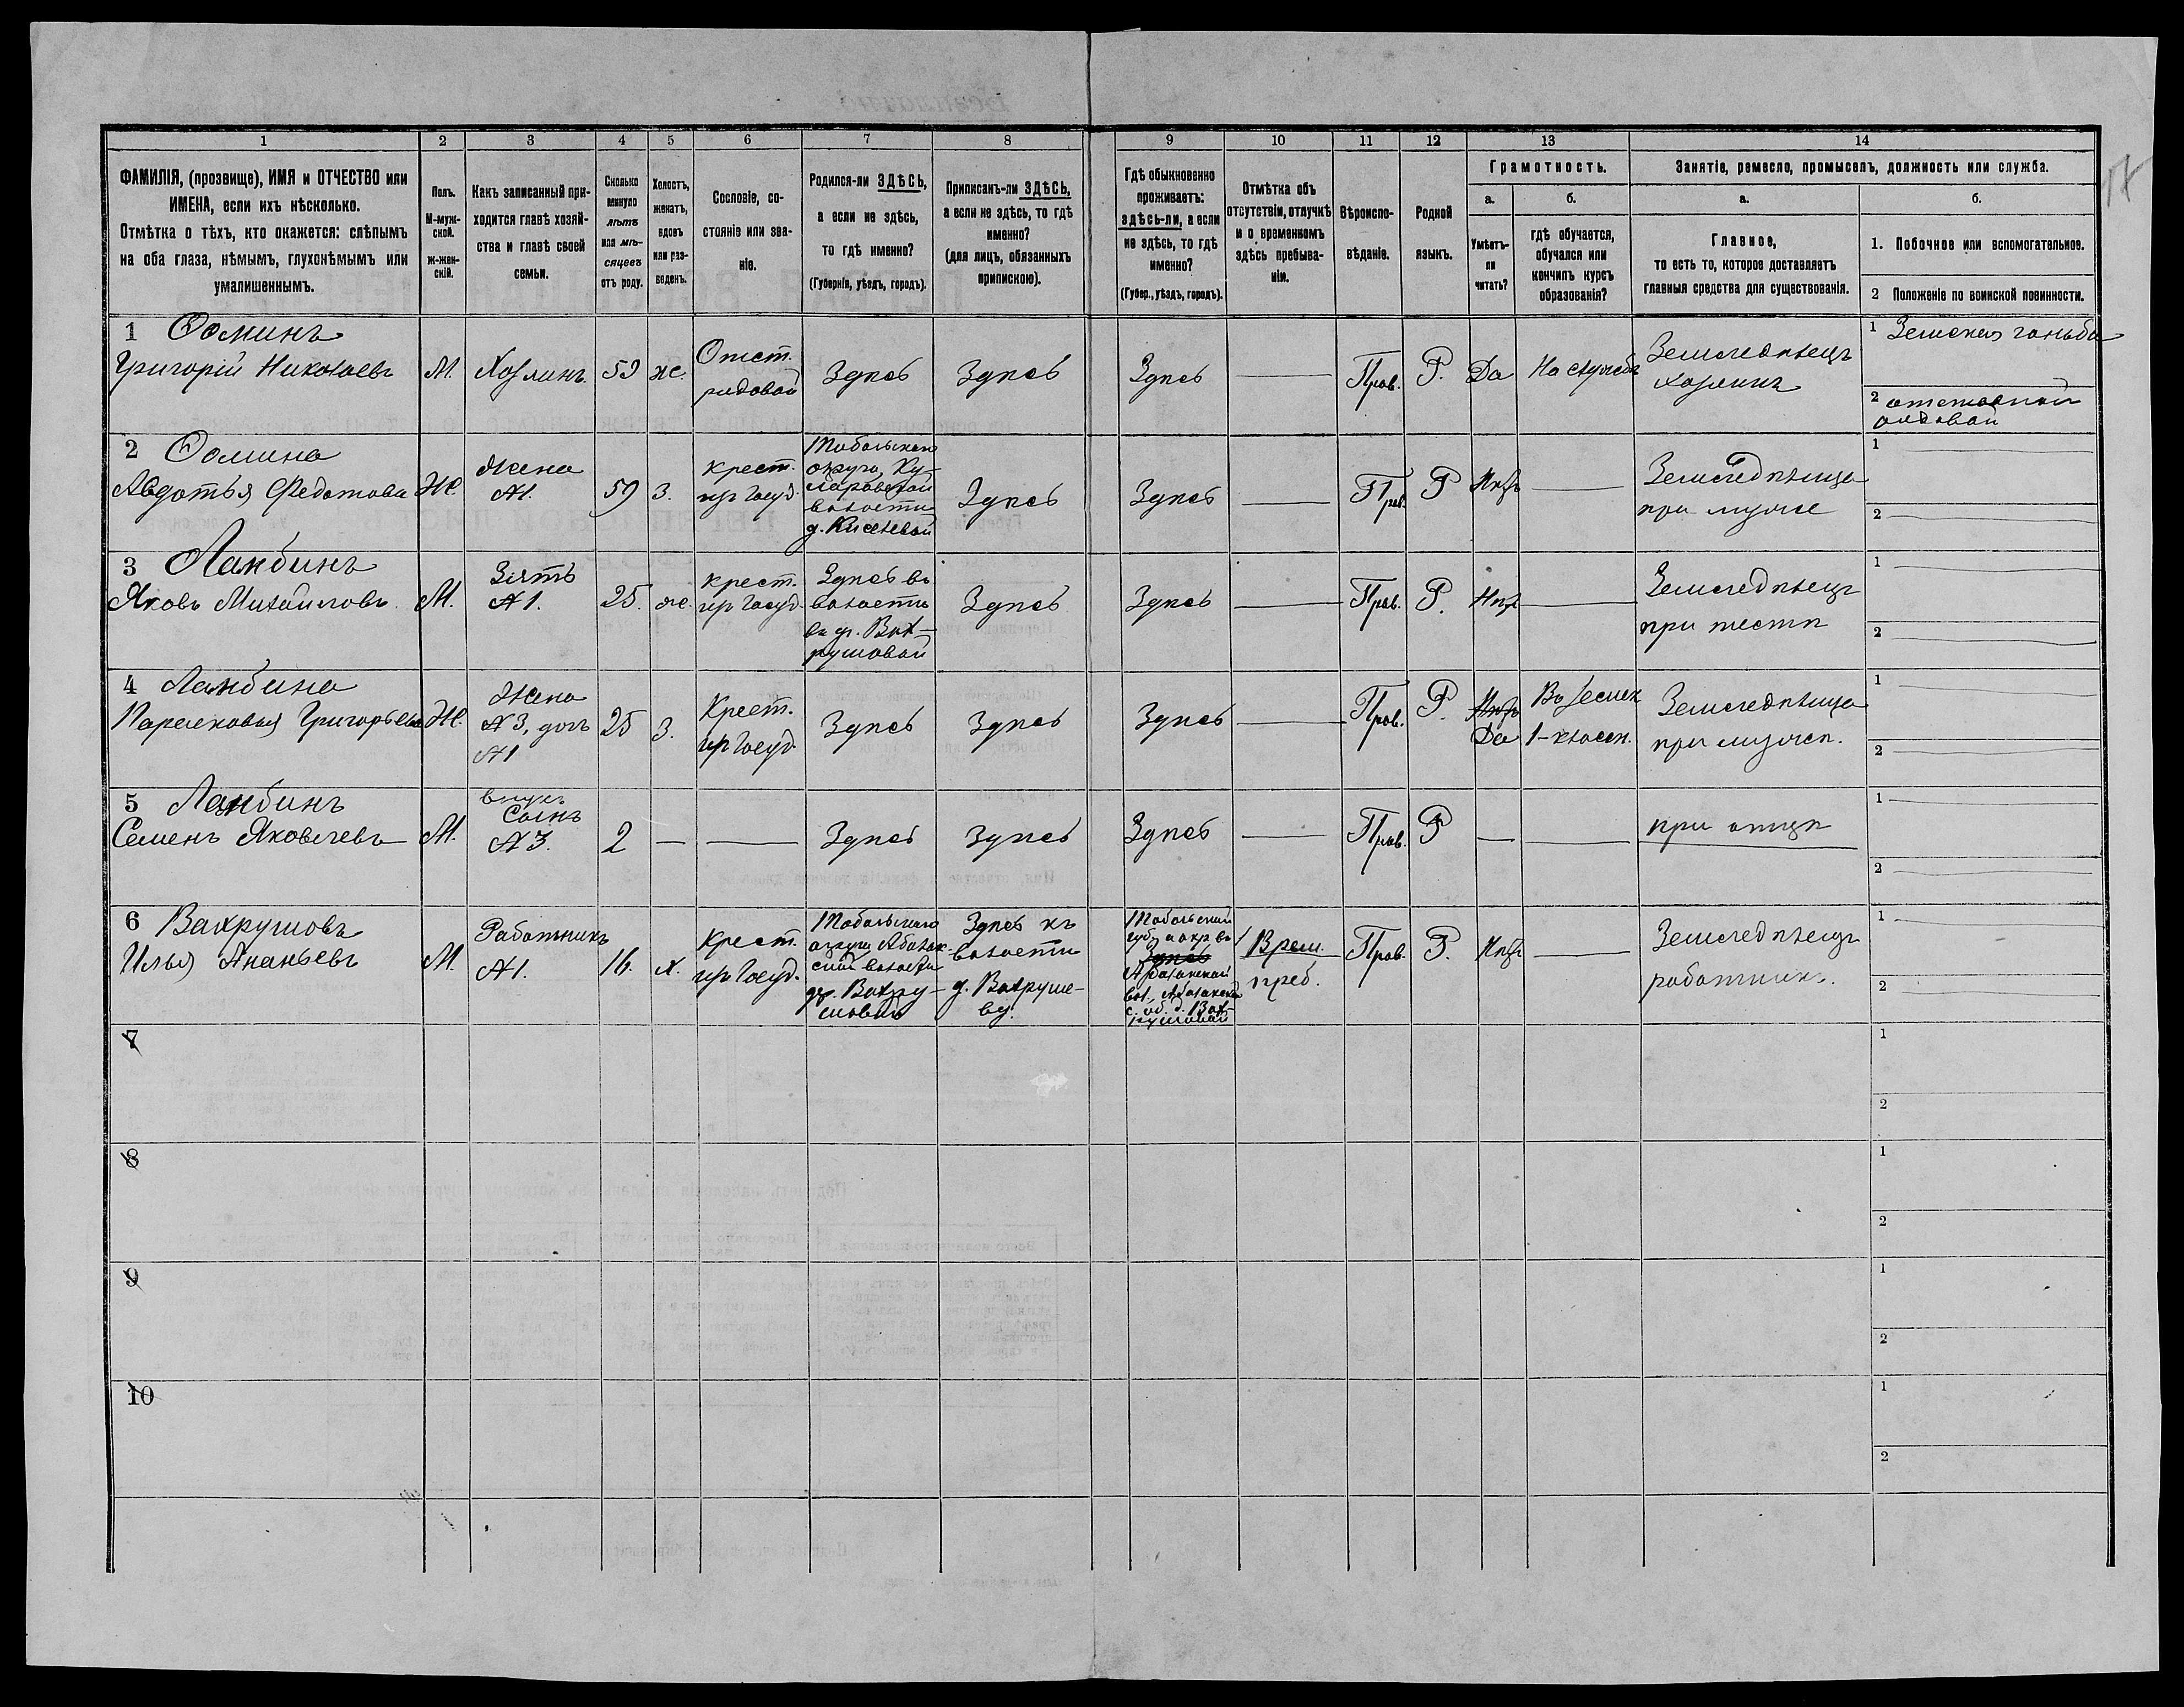 1 2 3 4 5 6 7 8 9 10 11 12 13 14
ФАМИЛІЯ, (прозвище), ИМЯ и ОТЧЕСТВО или
ИМЕНА, если ихъ нѣсколько.
Отмѣтка о тѣхъ, кто окажется: слѣпымъ
на оба глаза, нѣмымъ, глухонѣмымъ или
умалишеннымъ.
Полъ.
М-муж-
ской.
ж-жен-
скій.
Какъ записанный при-
ходится главѣ хозяй-
ства и главѣ своей
семьи.
Сколько
минуло
лѣтъ
или мѣ-
сяцевъ
отъ роду.
Холостъ,
женатъ,
вдовъ
или раз-
веденъ.
Сословіе, со-
стояніе или зва-
ніе.
Родился-ли ЗДѢСЬ,
а если не здѣсь,
то гдѣ именно?
(Губернія, уѣздъ, городъ).
Приписанъ-ли ЗДѢСЬ,
а если не здѣсь, то гдѣ
именно?
(для лицъ, обязанныхъ
припискою).
Гдѣ обыкновенно
проживаетъ:
здѣсь-ли, а если
не здѣсь, то гдѣ
именно?
(Губер., уѣздъ, городъ).
Отмѣтка объ
отсутствіи, отлучкѣ
и о временномъ
здѣсь пребыва-
ніи.
Вѣроиспо-
вѣданіе.
Родной
языкъ.
Грамотность.
а.
Умѣетъ-
ли
читать?
б.
гдѣ обучается,
обучался или
кончилъ курсъ
образованія?
Занятіе, ремесло, промыселъ, должность или служба.
а.
Главное,
то есть то, которое доставляетъ
главныя средства для существованія.
б.
1. Побочное или вспомогательное.
2 Положеніе по воинской повинности.
1 Ѳоминъ
Григорій Николаевъ
М.
Хозяинъ
59
ж.
Отст.
рядовой
Здѣсь
Здѣсь
Здѣсь
Прав.
Р.
Да
На службѣ
Земледѣлецъ
хозяинъ
1 Земская гоньба
2 отставной
рядовой
2 Ѳомина
Авдотья Федотова
Ж.
Жена
№1.
59
З.
крест.
изъ Госуд.
Тобольскаго
округа, Ку-
ларовской
волости
д. Киселевой
Здѣсь
Здѣсь
Прав.
Р
Нѣтъ
Земледѣлица
при мужѣ
1
2
3 Ланбинъ
Яковъ Михайловъ
М.
Зять
№1.
25.
ж.
крест.
изъ Госуд.
Здѣсь въ
волости
въ д. Вах-
рушовой
Здѣсь
Здѣсь
Прав.
Р.
Нѣтъ
Земледѣлецъ
при тестѣ
1
2
4 Ланбина
Парасковья Григорьева
Ж.
Жена
№3, дочь
№1
25
З.
Крест.
изъ Госуд.
Здѣсь
Здѣсь
Здѣсь
Прав.
Р.
Нѣтъ
Да
1-классн.
Земледѣлица
при мужѣ.
1
2
5 Ланбинъ
Семенъ Яковлевъ
М.
внукъ
Сынъ
№3.
2
Здѣсь
Здѣсь
Здѣсь
Прав.
Р
при отцѣ
1
2
6 Вахрушовъ
Илья Ананьевъ
М.
Работникъ
№1.
16.
х.
Крест.
изъ Госуд.
Тобольскаго
округа Абалак-
ской волости
др. Вахру-
шовой
Здѣсь къ
волости
д. Вахруше-
ву.
Тобольской
губ. и окр. въ
Здѣсь
Абалакской
вол., Абалакской
с. об. д. Вах-
рушовой
Врем.
преб.
Прав.
Р.
Нѣтъ
Земледѣлецъ
работникъ.
1
2
7
1
2
8
1
2
9
1
2
10
1
2